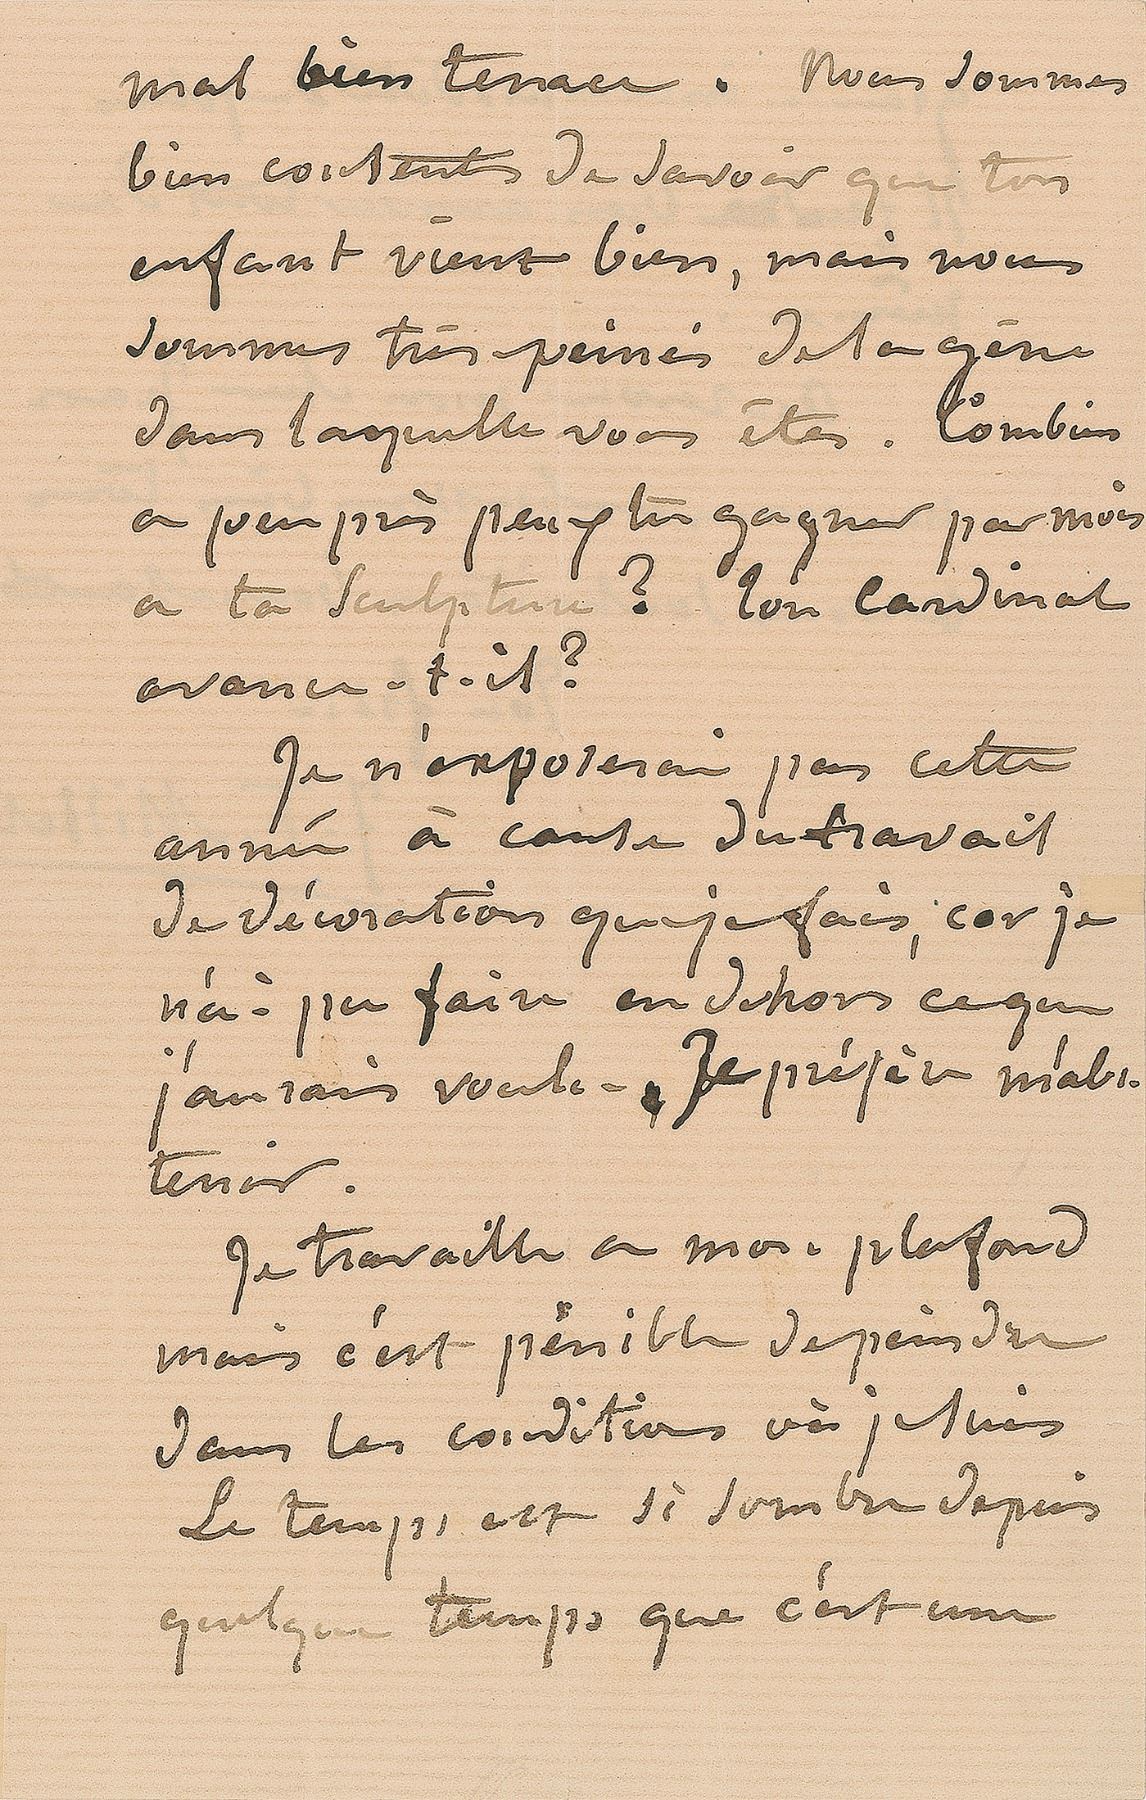 mal bien tenace. Nous sommes
bien contents de savoir que ton
enfant vient bien, mais nous
sommes très peinés de la gêne
dans laquelle vous êtes. Combien
a peu près peux tu gagner par mois
a ta sculpture ? Ton Cardinal
avance-t-il ?
Je n'exposerai pas cette
année à cause du travail
de décoration que je fais, car je
n'ai pu faire en dehors ce que
j'aurais voulu. Je préfère m'abs-
tenir.
Je travaille a mon plafond
mais c'est pénible de peindre
dans les conditions où je suis
Le temps est si sombre depuis
quelque temps que c'est une